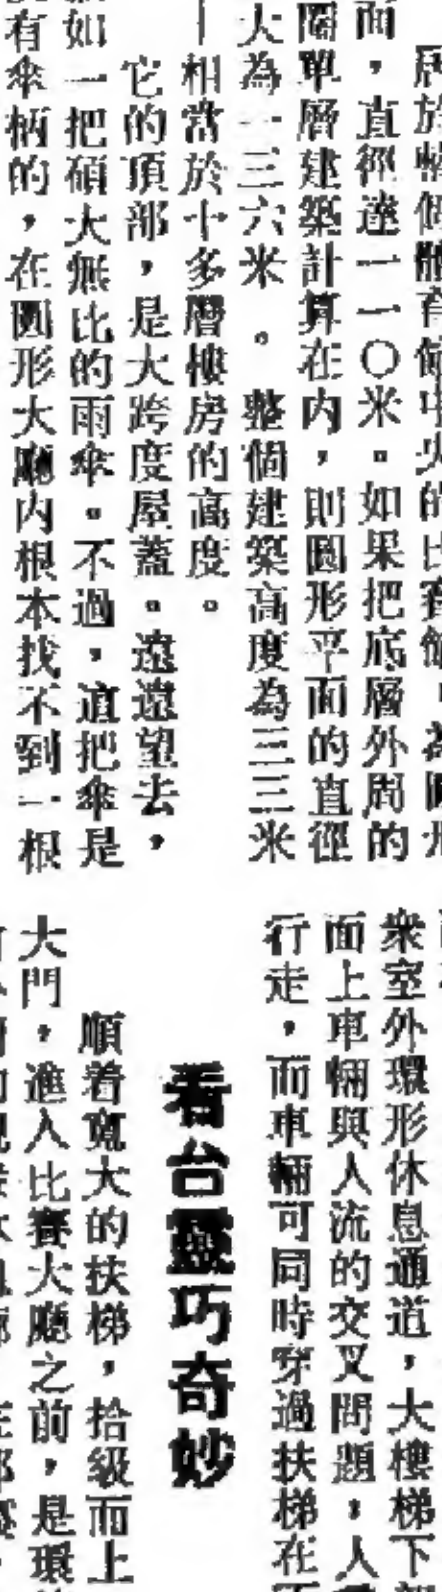 居於整個體育館中央的比賽館，為圓形
面，直徑達一一〇米。如果把底層外周的
圈單層建築計算在內，則圓形平面的直徑
大為一三六米。整個建築高度為三三米
—相當於十多層樓房的高度。
它的頂部，是大跨度屋蓋。遠遠望去，
如一把碩大無比的雨傘。不過，這把傘是
有傘柄的，在圓形大廳內根本找不到一根
眾室外環形休息通道，大樓梯下
面上車輛與人流的交叉問題，人
行走，而車輛可同時穿過扶梯在
看台靈巧奇妙
順着寬大的扶梯，拾級而上
大門，進入比賽大廳之前，是環